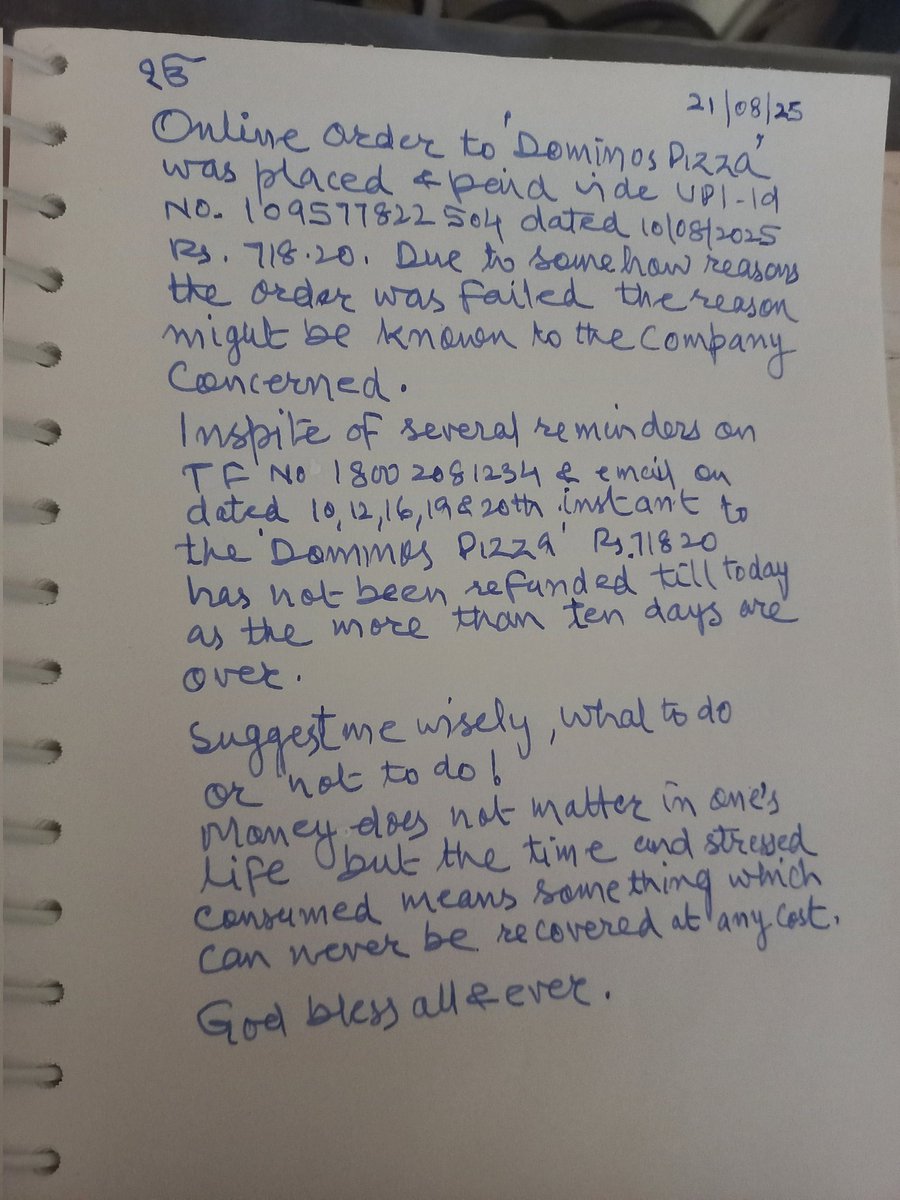 ੴ
21/08/25
Online order to 'Dominos Pizza'
was placed & paid vide UPI-Id
No. 109577822504 dated 10/08/2025
Rs. 718.20. Due to somehow reasons
the order was failed the reason
might be known to the Company
Concerned.
Inspite of several reminders on
TF No 1800 2081234 & email on
dated 10,12,16,19 & 20th instant to
the 'Dominos Pizza' Rs.718 20
has not been refunded till today
as the more than ten days are
over.
Suggest me wisely, what to do
or not to do!
Money does not matter in one's
life but the time and stressed
consumed means something which
can never be recovered at any cost.
God bless all & ever.